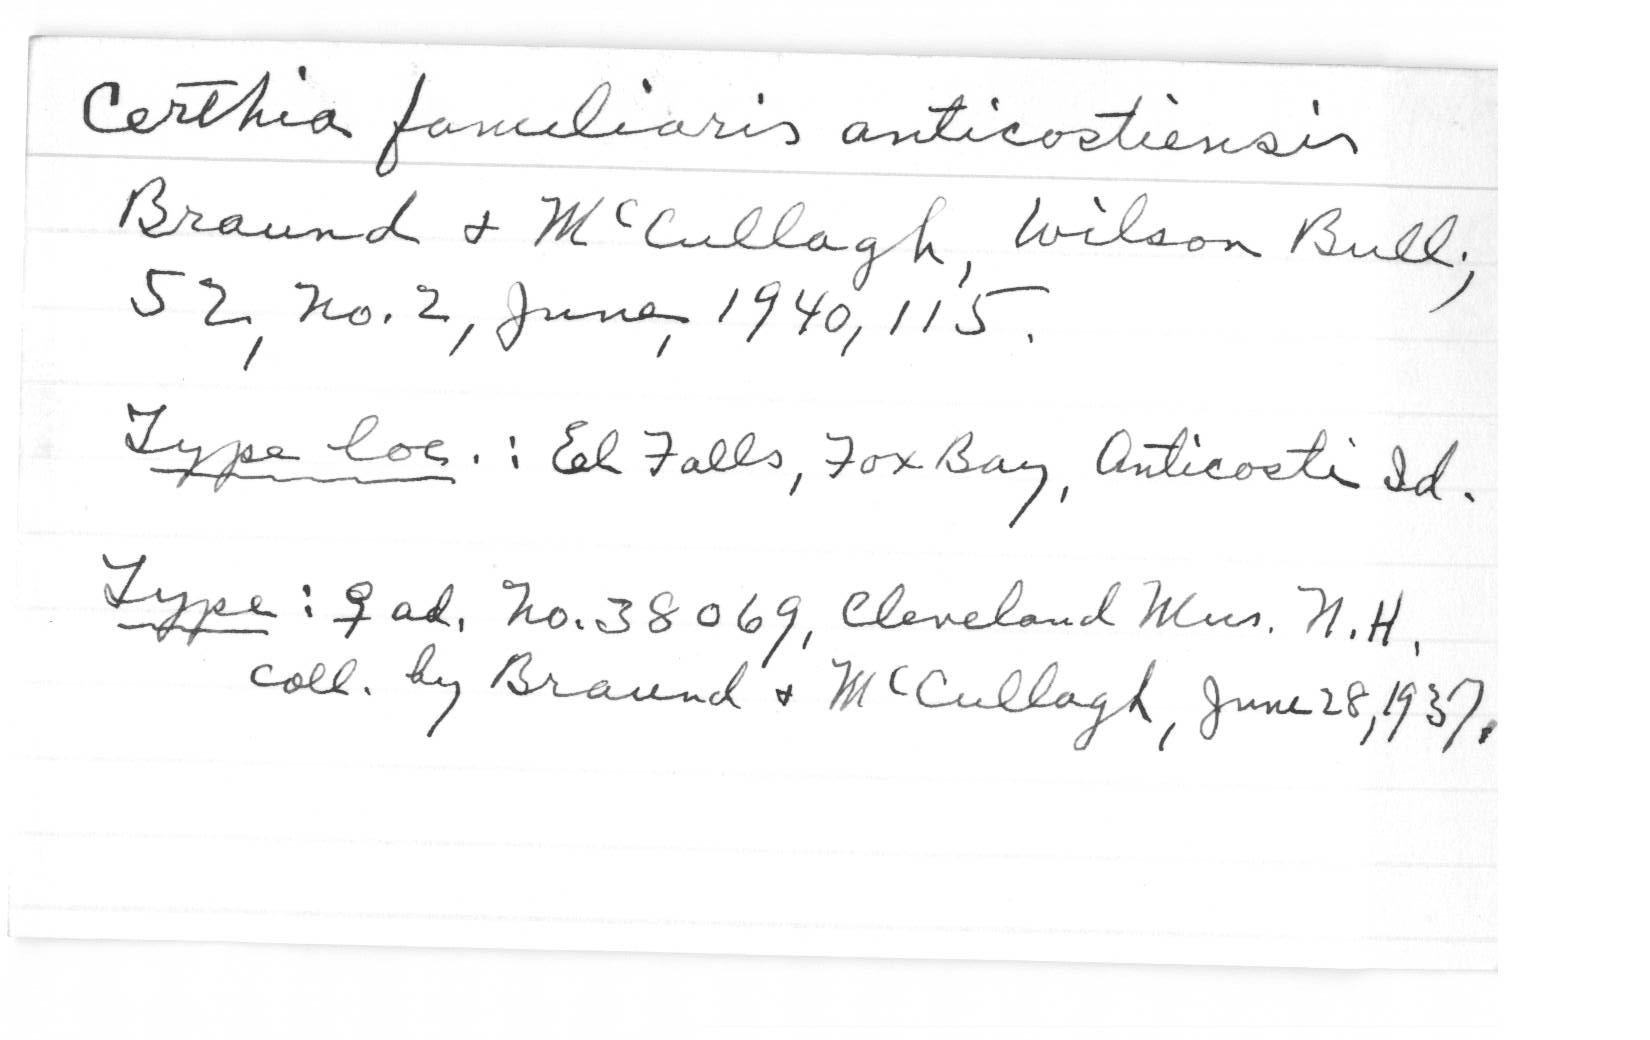 Certhia familiaris anticostiensis
Braund & McCullagh, Wilson Bull.,
52, No. 2, June, 1940, 115.
Type loc.: Eel Falls, Fox Bay, Anticosti Id.
Type: ♀ ad. No. 38069, Cleveland Mus. N.H.
coll. by Braund & McCullagh, June 28, 1937.